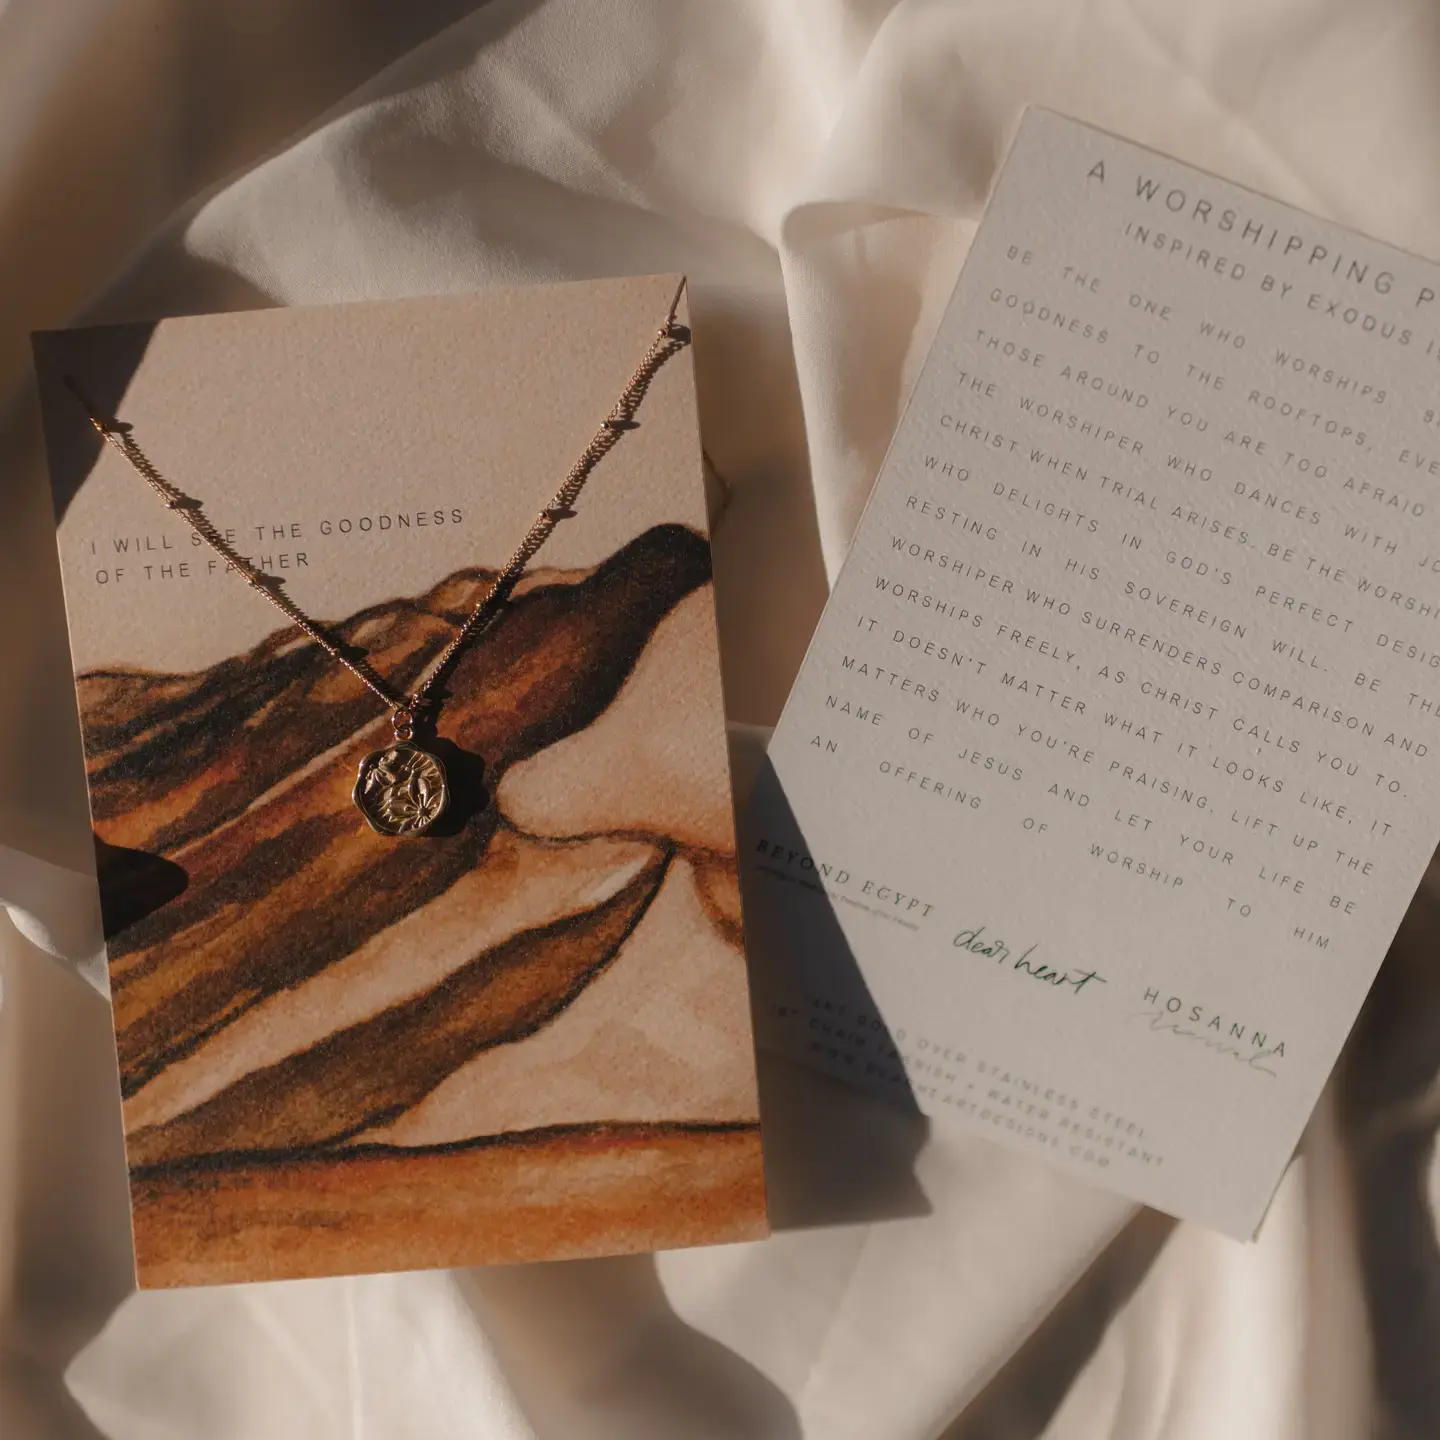 I WILL SEE THE GOODNESS
OF THE FATHER
A WORSHIPPING P
INSPIRED BY EXODUS 15
BE THE ONE WHO WORSHIPS
GOODNESS TO THE ROOFTOPS, EVE
THOSE AROUND YOU ARE TOO AFRAID
THE WORSHIPER WHO DANCES WITH JO
CHRIST WHEN TRIAL ARISES. BE THE WORSHI
WHO DELIGHTS IN GOD'S PERFECT DESIG
RESTING IN HIS SOVEREIGN WILL. BE THE
WORSHIPER WHO SURRENDERS COMPARISON AND
WORSHIPS FREELY, AS CHRIST CALLS YOU TO.
IT DOESN'T MATTER WHAT IT LOOKS LIKE, IT
MATTERS WHO YOU'RE PRAISING. LIFT UP THE
NAME OF JESUS AND LET YOUR LIFE BE
AN OFFERING OF WORSHIP TO HIM.
BEYOND EGYPT
dear heart
HOSANNA
revival
14KT GOLD OVER STAINLESS STEEL
18" CHAIN TARNISH + WATER RESISTANT